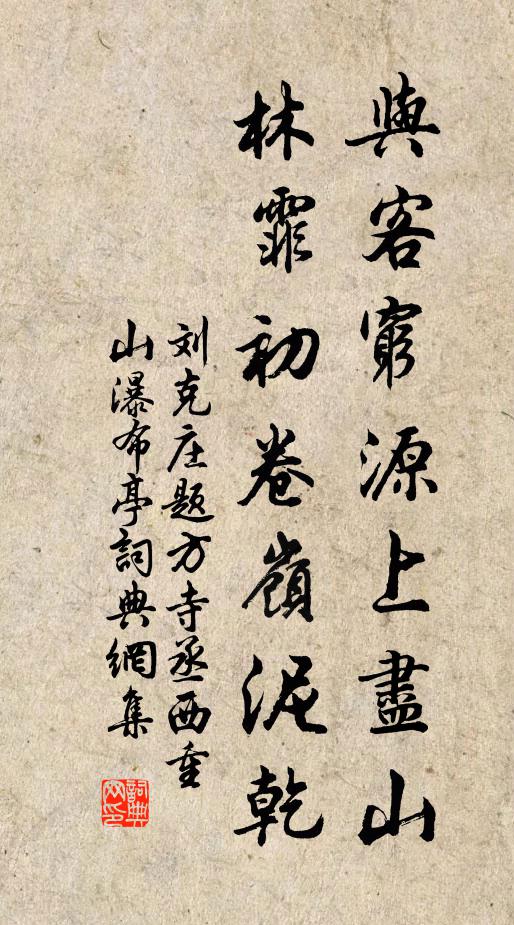 與客窮源上盡山
林霏初卷嶺泥乾
刘克庄題方寺丞西重
山瀑布亭詞典網集
詞典
网印